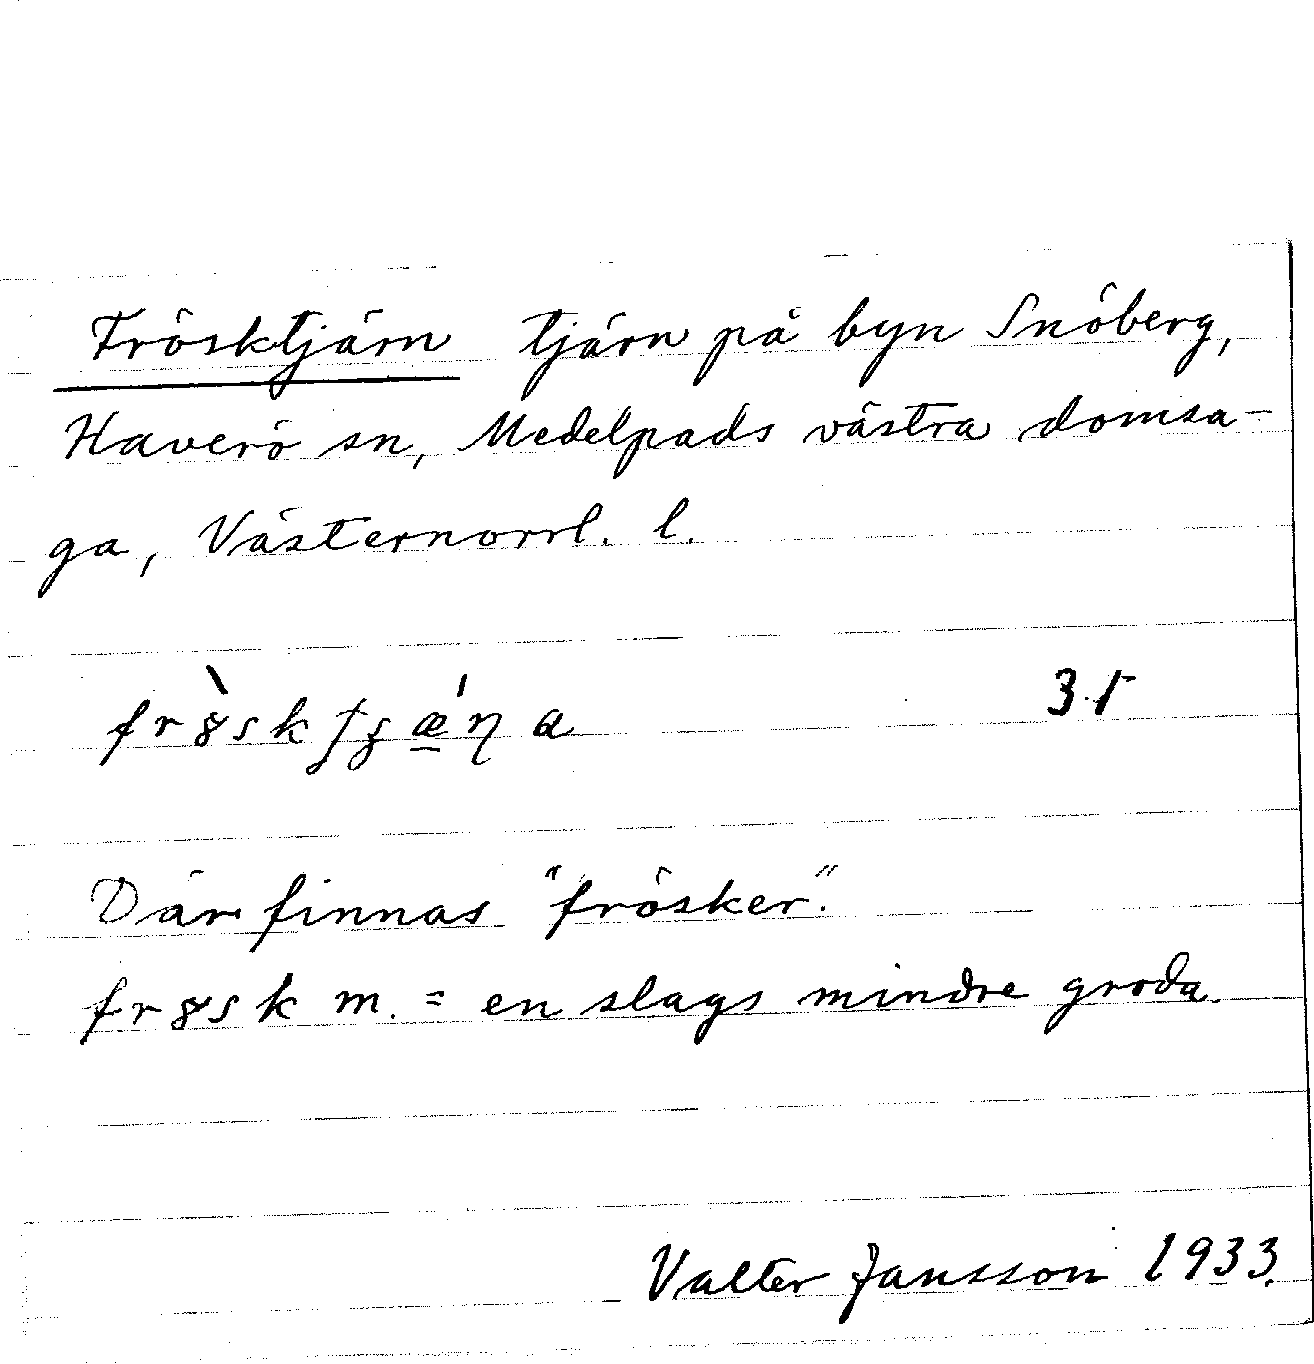 Frösktjärn tjärn på byn Snöberg,
Haverö sn, Medelpads västra domsa-
ga, Västernorrl. l.
Där finnas "frösker".
m. = en slags mindre groda.
Valter Jansson 1933.